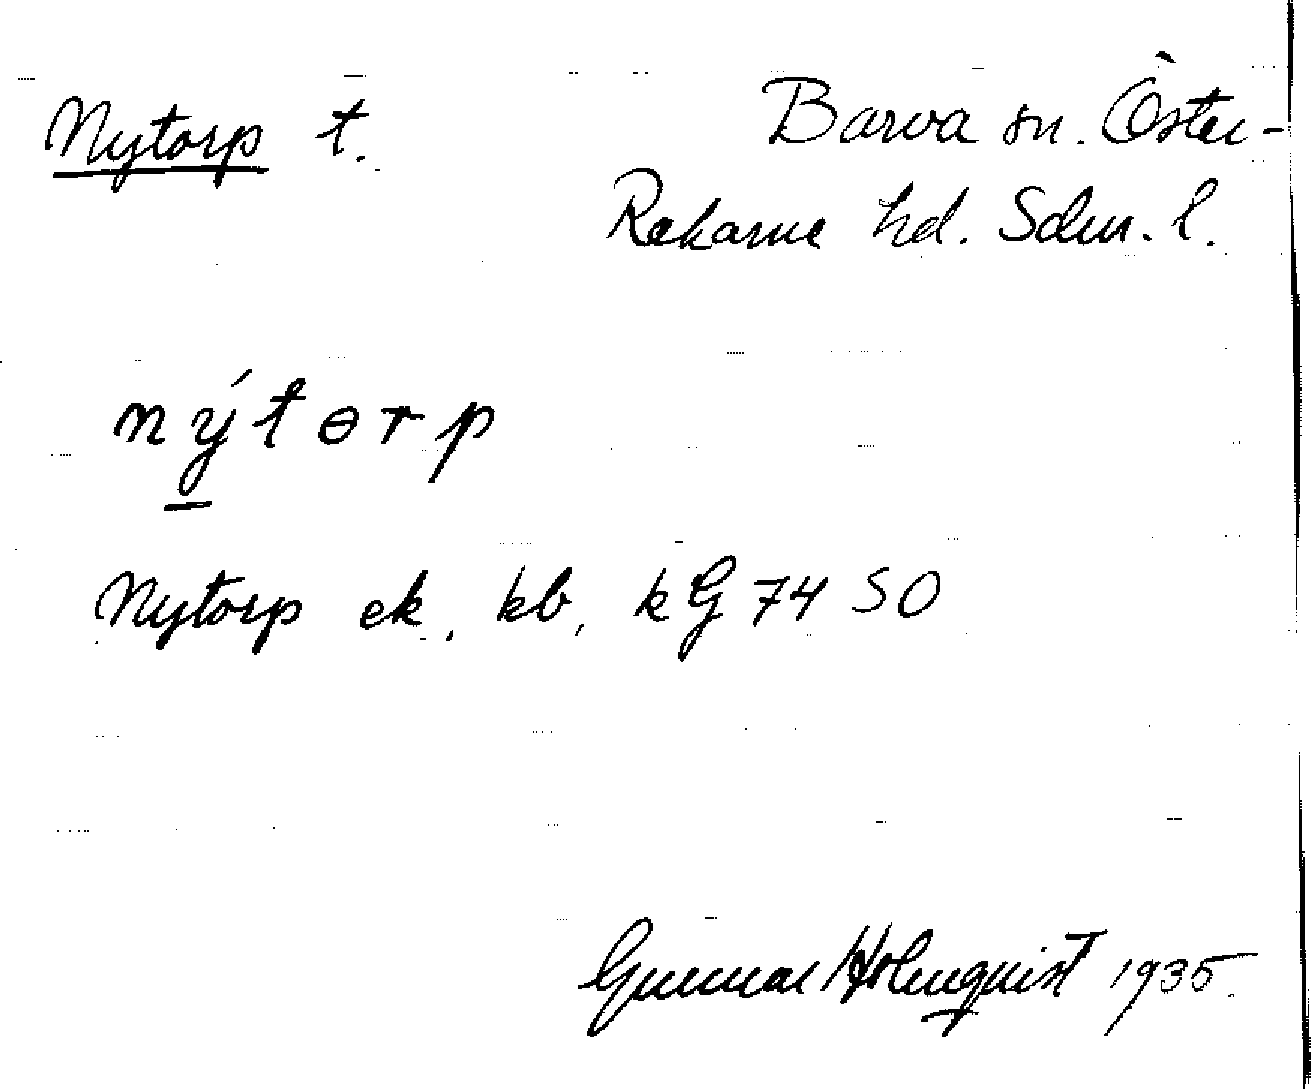 Nytorp t. Barva sn. Öster-
Rekarne hd. Sdm. l.
nýtɵrp
Nytorp ek, kb, kG 74 SO
Gunnar Holmquist 1935.